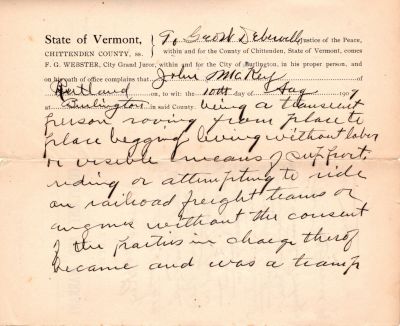 State of Vermont, To Geo W Justice of the Peace,
CHITTENDEN COUNTY, ss. within and for the County of Chittenden, State of Vermont, comes
F. G. WEBSTER, City Grand Juror, within and for the City of Burlington, in his proper person, and
on his oath of office complains that John McKey of
Rutland on, to wit: the 10th day of Aug 190
Burlington in said County. being a transient
person roving from place to
place begging living without labor
or visible means of support,
riding or attempting to ride
on railroad freight teams or
engines without the consent
of the parties in charge therof
became and was a tramp